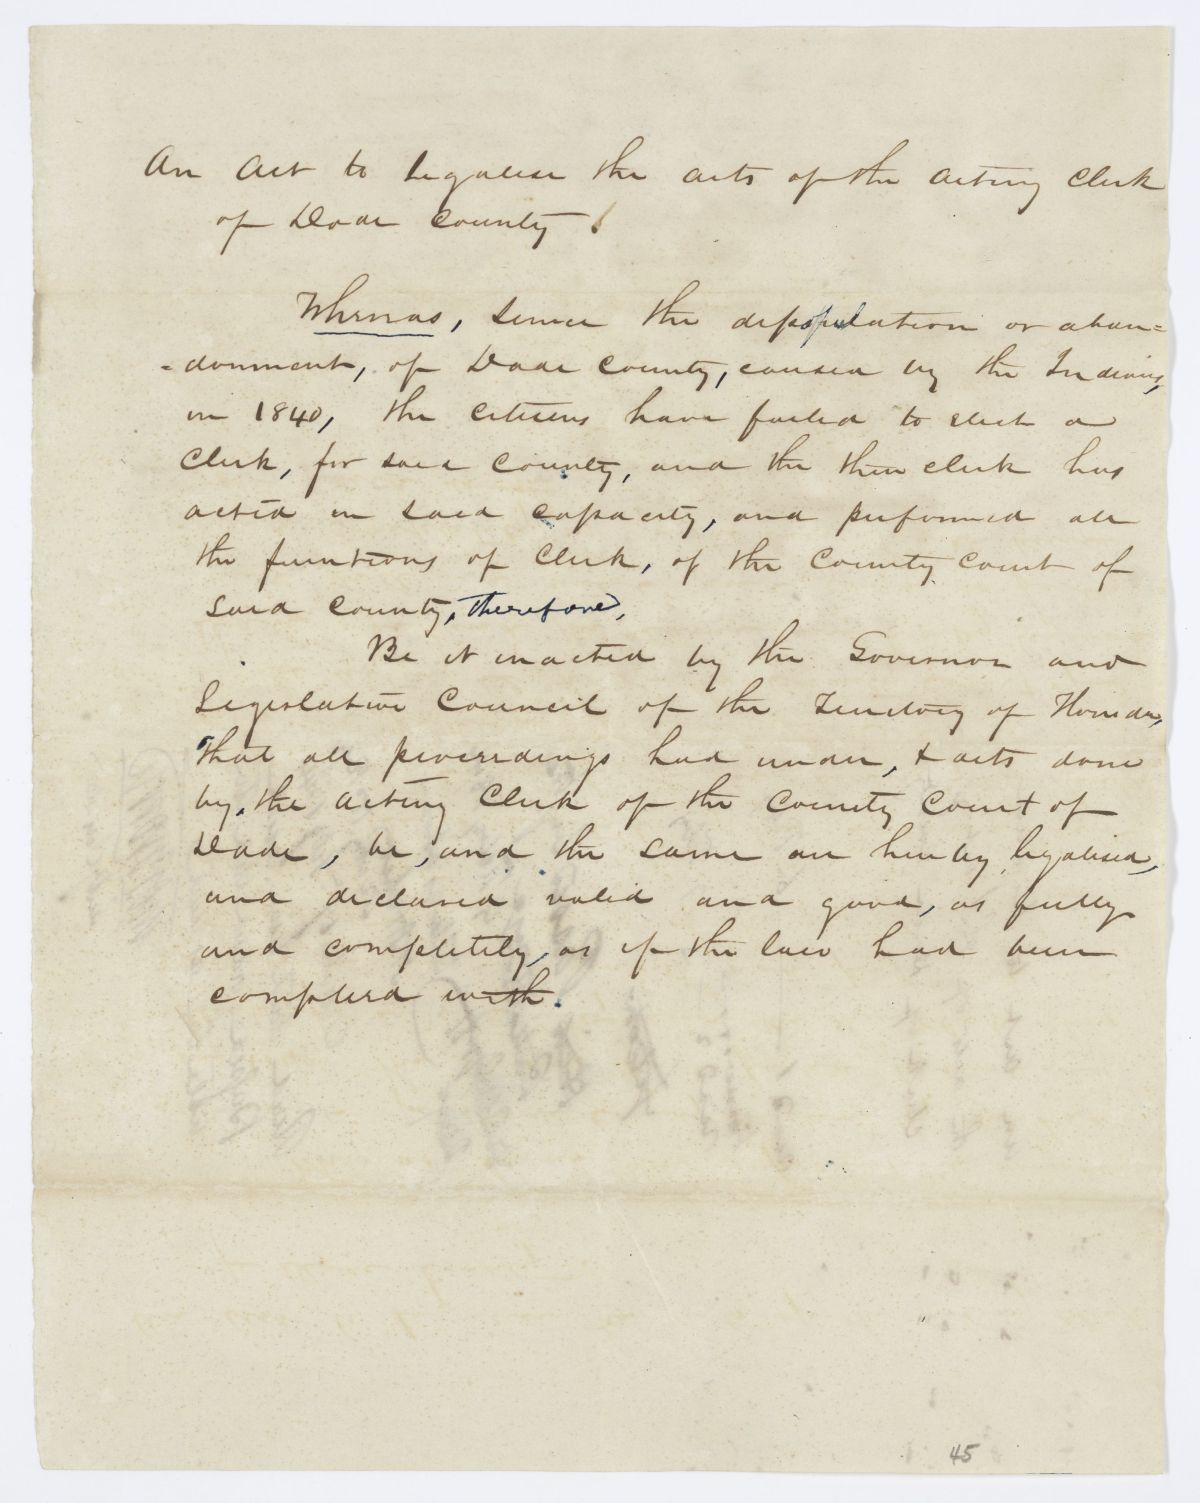 An Act to Legalise the acts of the acting Clerk
of Dade County.
Whereas, since the depopulation or aban=
=donment, of Dade County, caused by the Indians,
in 1840, the Citisens have failed to elect a
Clerk, for said County, and the then clerk has
acted in said capacity, and performed all
the functions of Clerk, of the County Court of
said County, therefore,
Be it enacted by the Governor and
Legislative Council of the Territory of Florida,
that all proceedings had under, & acts done
by, the acting Clerk of the County Court of
Dade, be, and the same are hereby legalised,
and declared valid and good, as fully
and completely, as if the law had been
complied with.
45